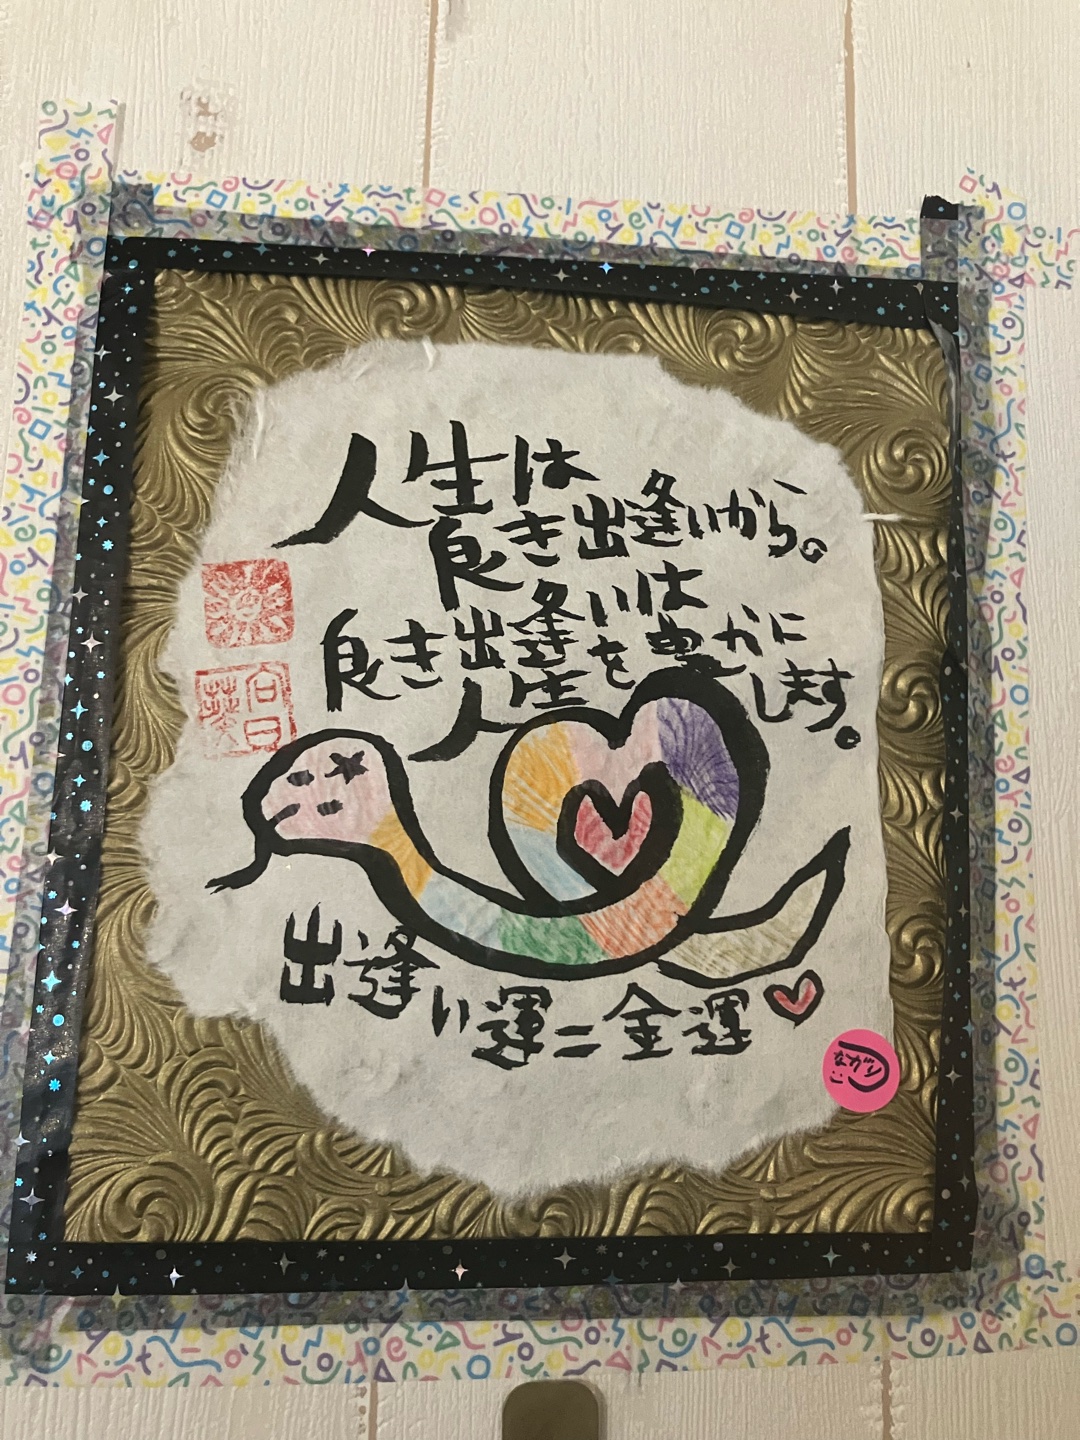 人生は
良き出逢いから。
良き出逢いは
人生を豊かに
します。
出逢い運=金運
向日葵
ながい